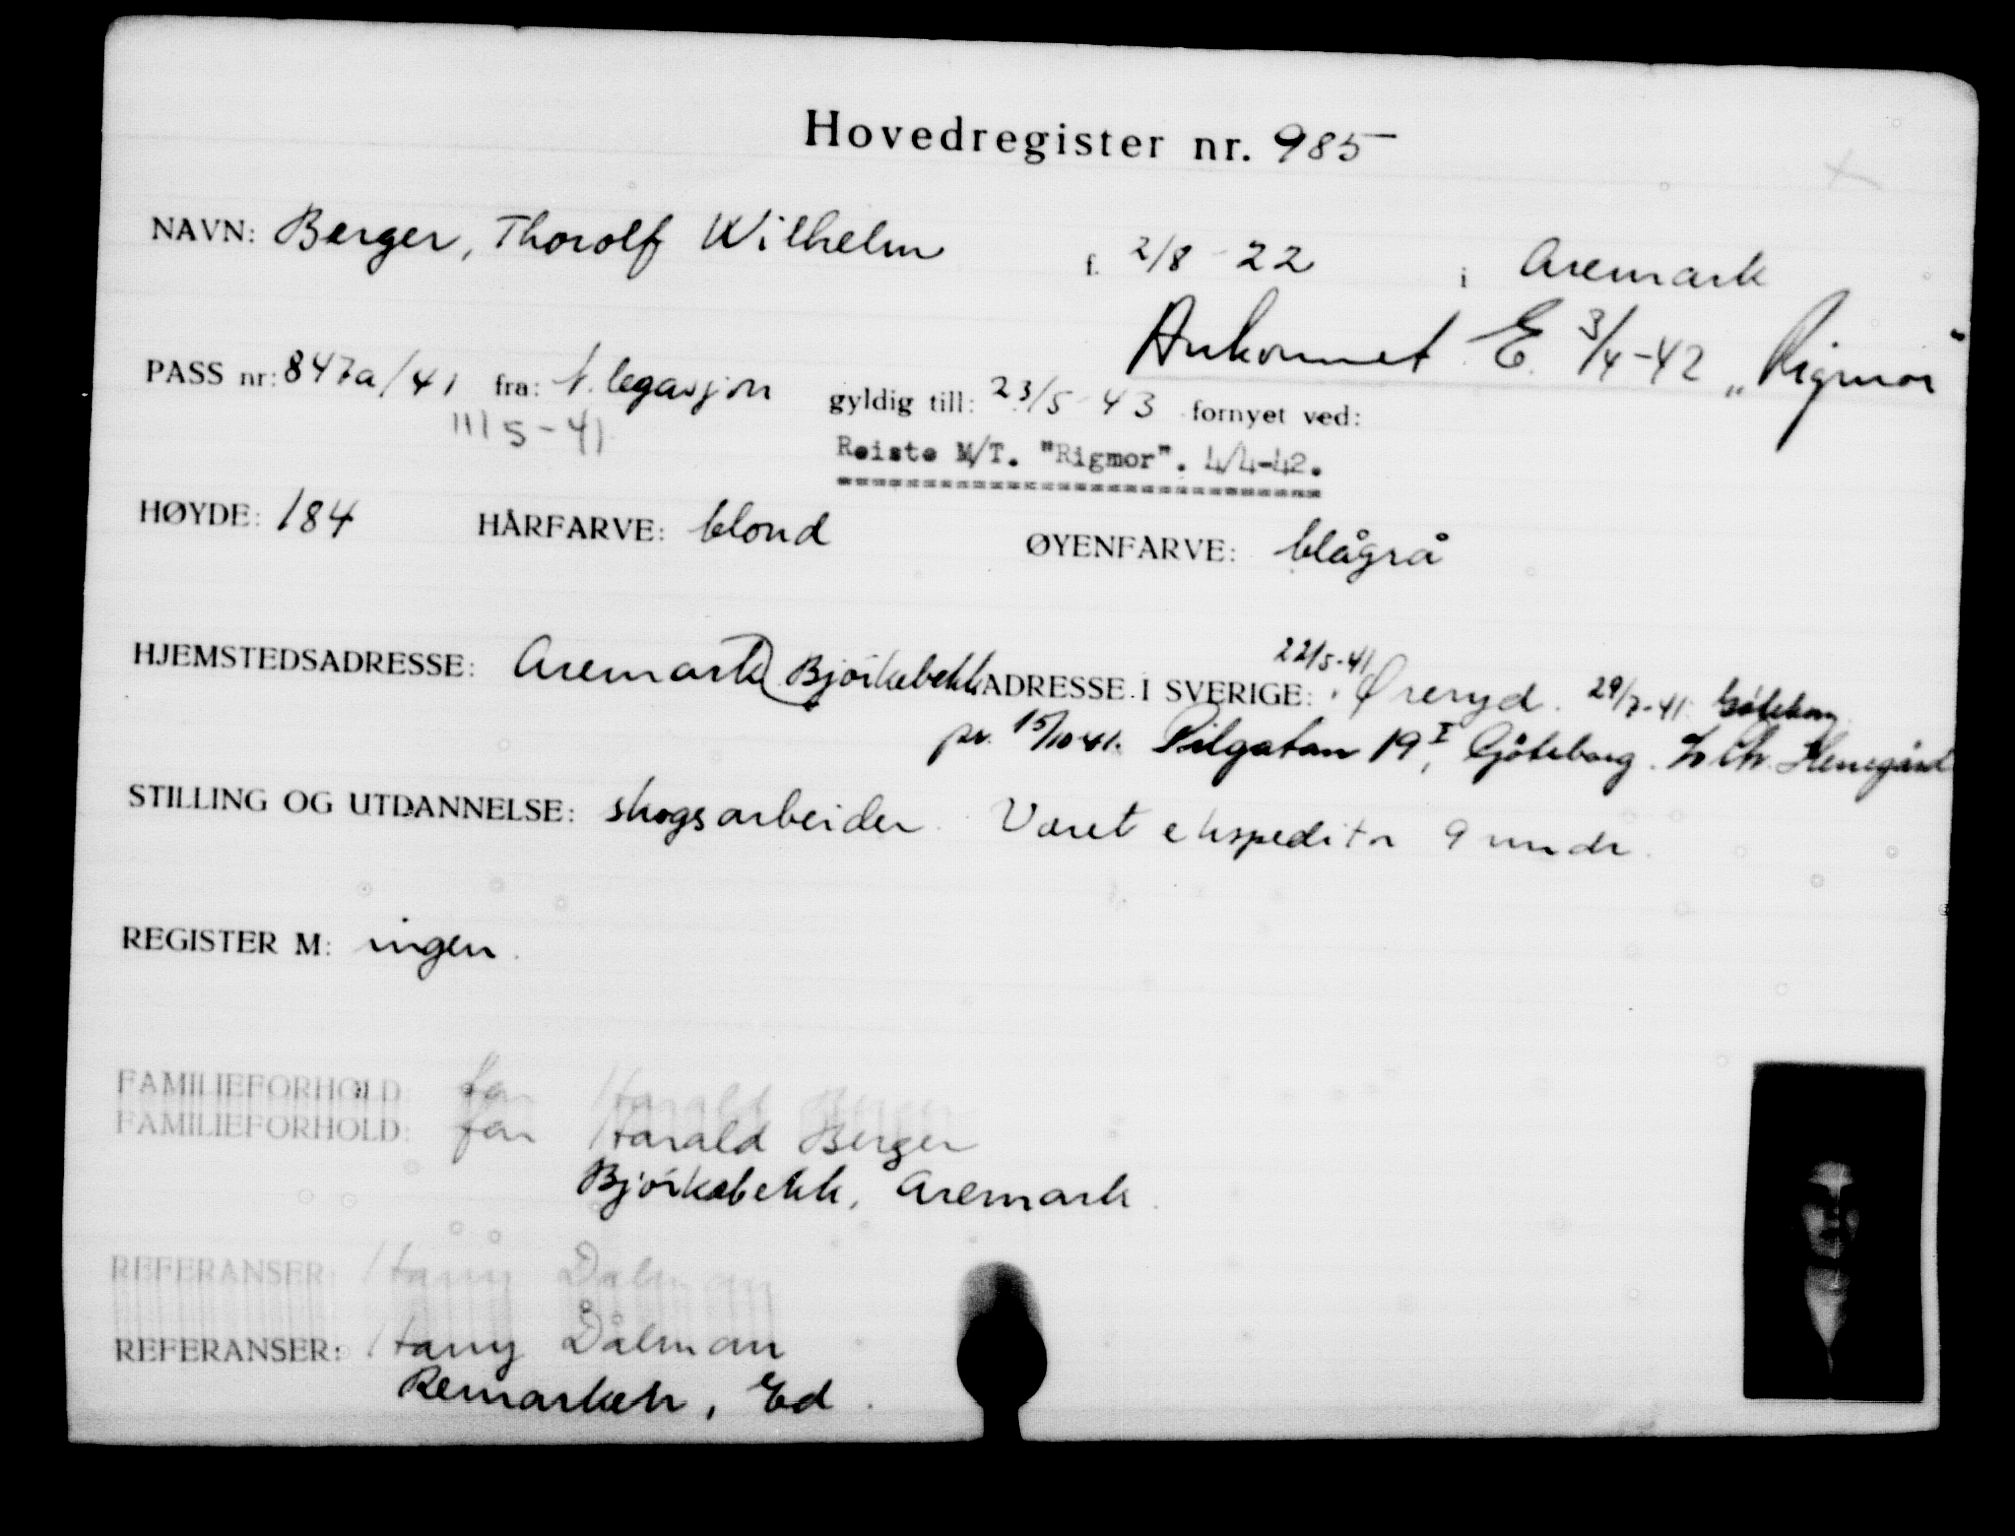 Hovedregister nr. 985
NAVN: Berger, Thorolf Wilhelm f. 2/8-22 i Aremark
Ankommet E. 3/4-42 „Rigmor"
PASS nr: 847a/41 fra: N. legasjon gyldig till: 23/5 43 fornyet ved:
5-41
Reiste M/T. "Rigmor". 4/4-42.
HØYDE: 184 HÅRFARVE: blond ØYENFARVE: blågrå
HJEMSTEDSADRESSE: Aremark Bjørkebekk ADRESSE I SVERIGE: 22/5-41 Øreryd. 29/7-41 Göteborg
pr. 15/10 41. Pilgatan 19 I, Göteborg.
STILLING OG UTDANNELSE: skogsarbeider. Været ekspeditør 9 mndr.
REGISTER M: ingen.
FAMILIEFORHOLD: far Harald Berger
FAMILIEFORHOLD: far Harald Berger
Bjørkebekk, Aremark.
REFERANSER: Harry Dalman
REFERANSER: Harry Dålman
Ed.